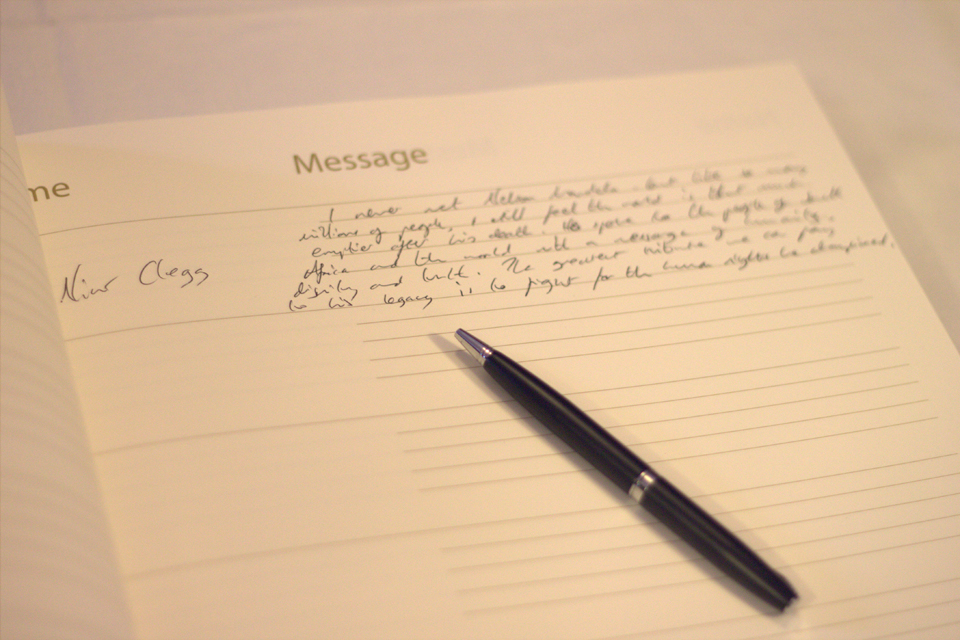 me
Message
Nick Clegg
I never met Nelson Mandela. but like so many
millions of people, I still feel the world is that much
emptier after his death. He spoke to the people of South
Africa and the world with a message of humanity,
dignity and truth. The greatest tribute we can pay
to his legacy is to fight for the human rights he championed.